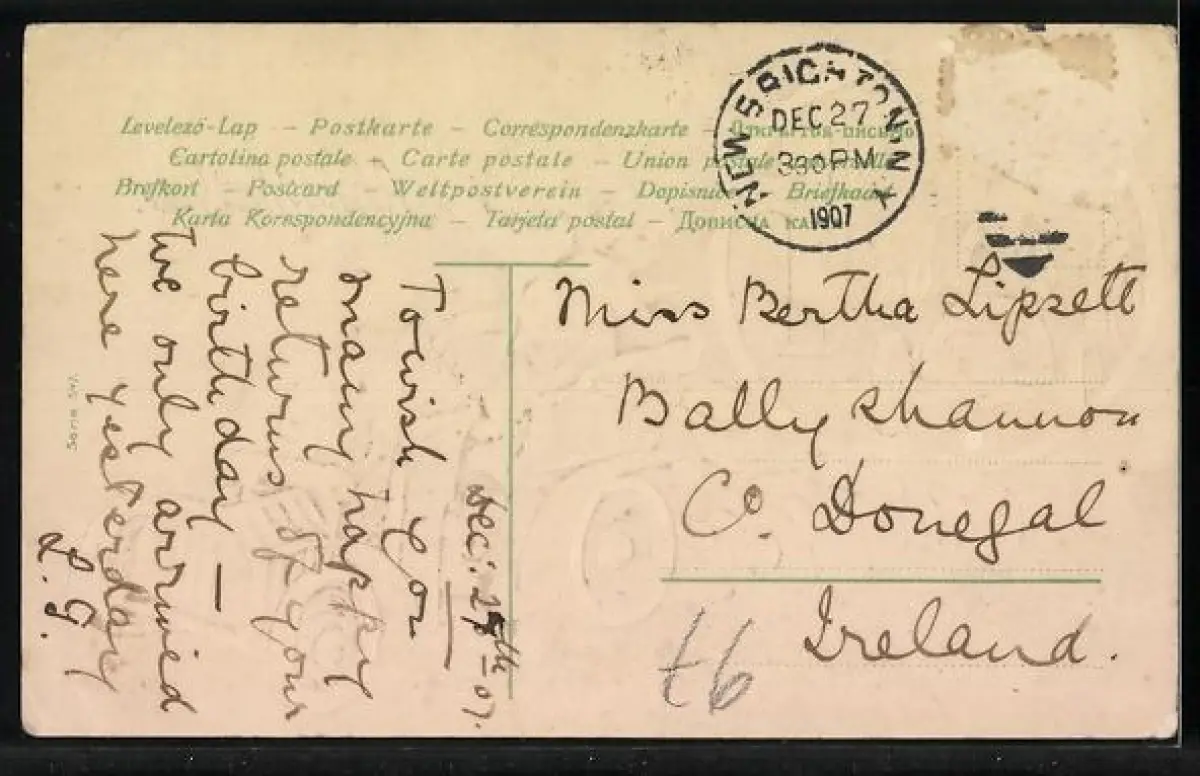 Levelező-Lap – Postkarte – Correspondenzkarte –
Cartolina postale – Carte postale – Union
Brefkort – Postcard – Weltpostverein – Briefkaart
Karta Korespondencyjna – Tarjeta postal – Дописна
NEW BRIGHTON N.Y.
DEC 27
330 PM
1907
Dec: 27th – 07.
To wish you
many happy
returns of your
birthday –
We only arrived
here yesterday
L. G.
Miss Bertha Lipsett
Ballyshannon
Co. Donegal
Ireland.